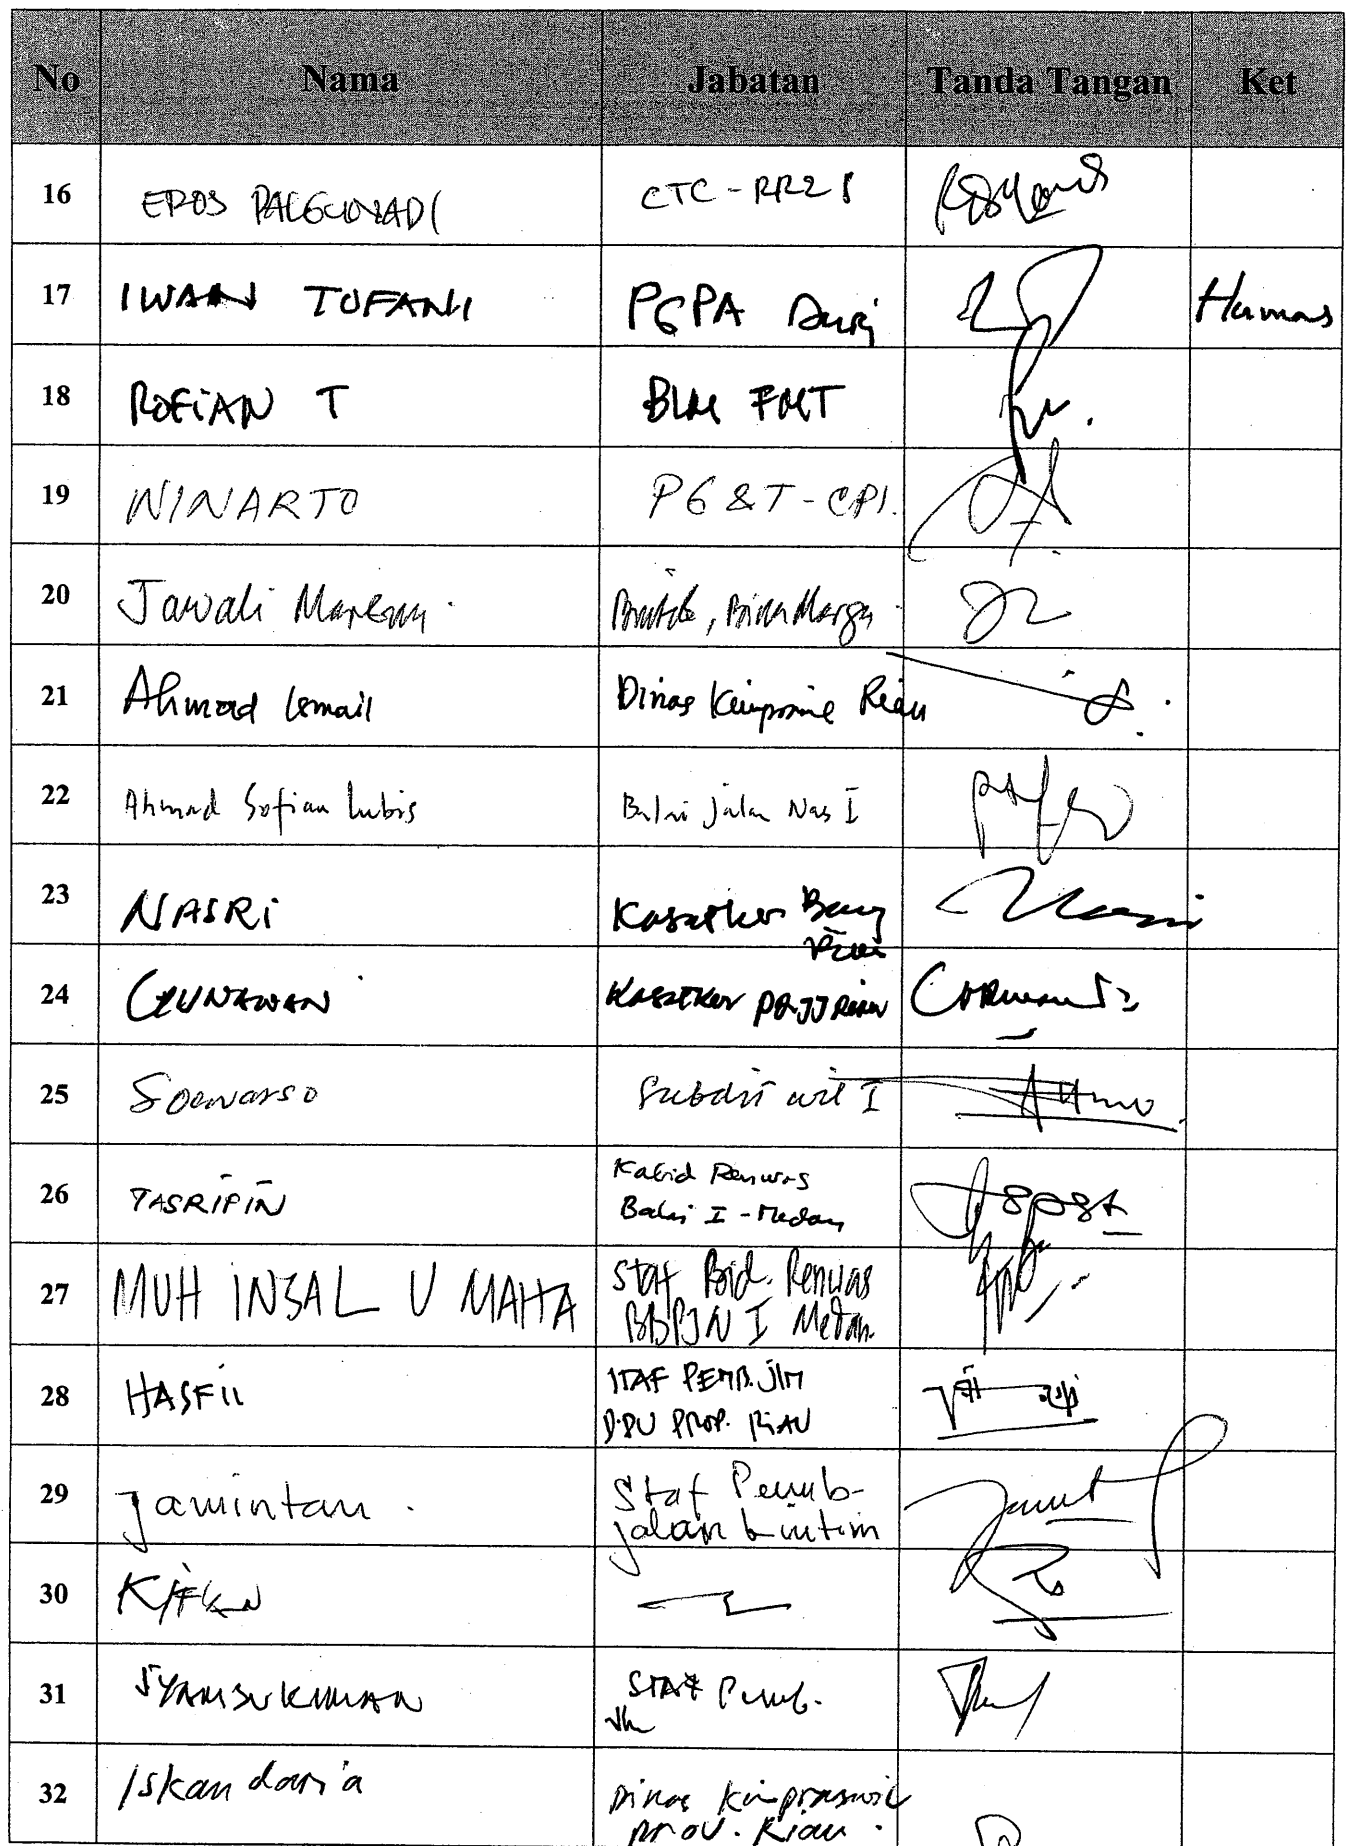 No Nama Jabatan Tanda Tangan Ket
16 EROS PALGUNADI CTC - RR2
17 IWAN TOFANI PGPA Duri Humas
18 ROFiAN T BLM FMT
19 WINARTO PG & T - CPI.
20 Jawali Bina Marga
21 Ahmad Ismail Dinas Kimpraswil Riau
22 Ahmad Sofian Lubis Balai Jalan Nas I
23 NASRi Kasatker Bang
Riau
24 GUNAWAN Kasatker PRJJ Riau
25 Soewarso Subdit wil I
26 TASRIPIN Kabid Renwas
Balai I - Medan
27 MUH INZAL U MAHA Staf Bid. Renwas
BBPJN I Medan
28 HASFIL STAF PEMB. JLN
DPU PROP. RiAU
29 Jamintan Staf Pemb-
jalan Lintim
30
31 SYAMSUKIMAN STAF Pemb.
Jln
32 Iskandaria Dinas Kimpraswil
Prov. Riau.